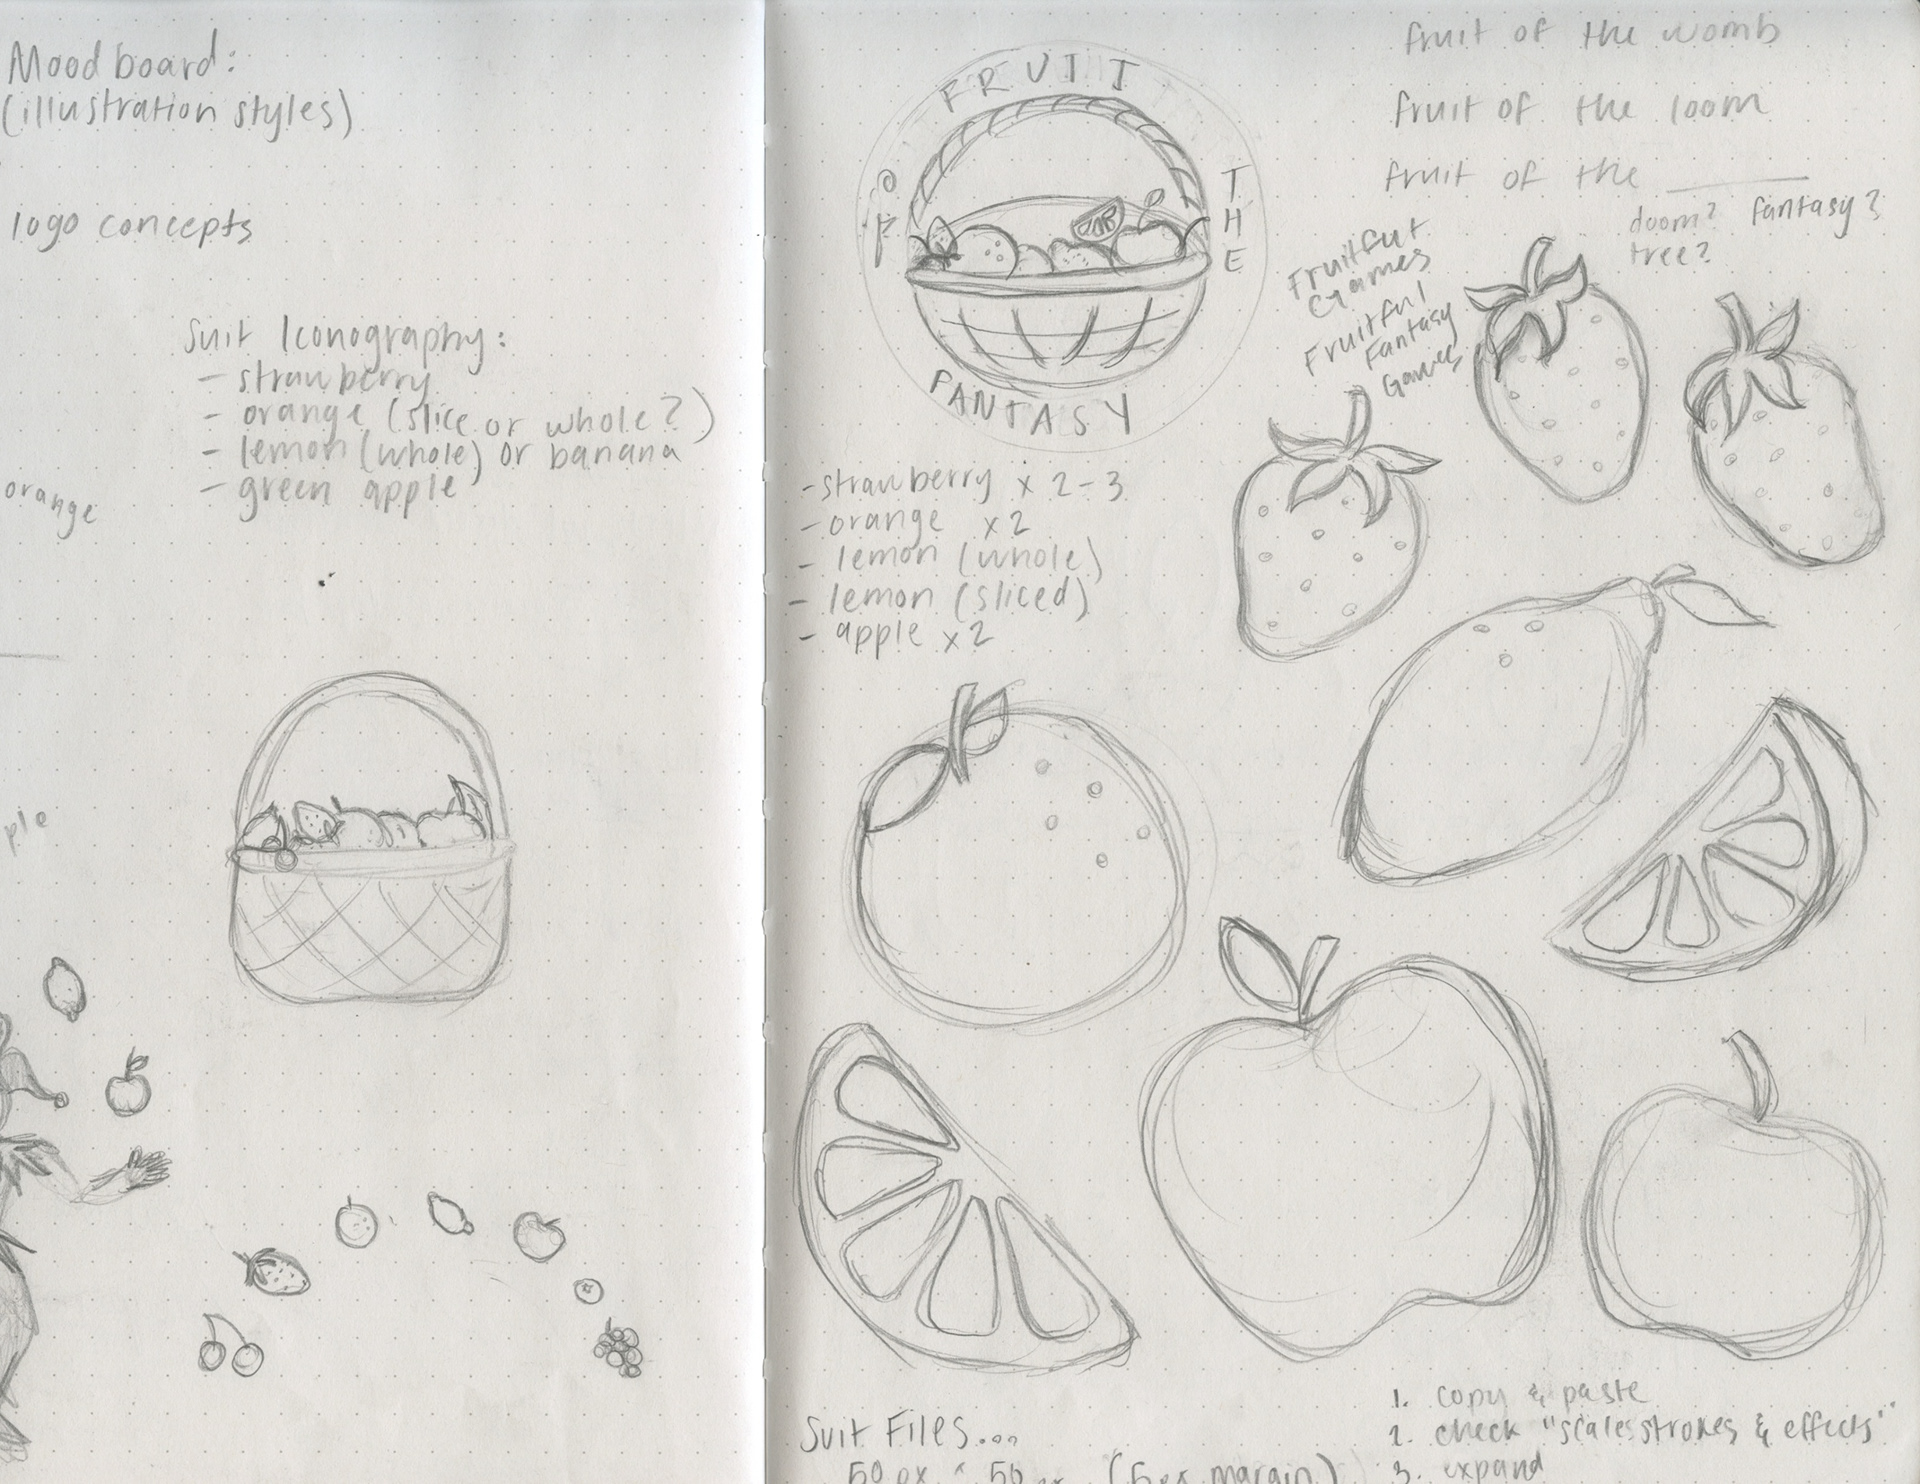 Mood board:
(illustration styles)
logo concepts
Suit Iconography:
- strawberry
- orange (slice or whole?)
- lemon (whole) or banana
- green apple
orange
ple
FRUIT
OF
THE
FANTASY
fruit of the womb
fruit of the loom
fruit of the ______
doom? fantasy?
tree?
Fruitful
Games
Fruitful
Fantasy
Games
- strawberry x 2-3
- orange x2
- lemon (whole)
- lemon (sliced)
- apple x2
Suit Files...
50 px x 50 px (5px margin)
1. copy & paste
2. check "scale strokes & effects"
3. expand